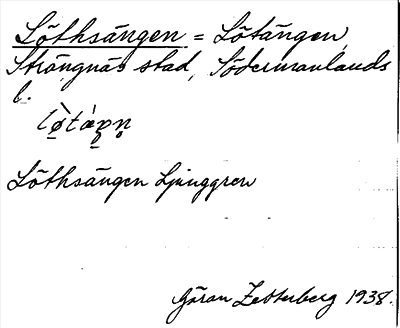 Löthsängen = Lötängen,
Strängnäs stad, Södermanlands
l.
Löthsängen Ljunggren
Göran Zetterberg 1938.